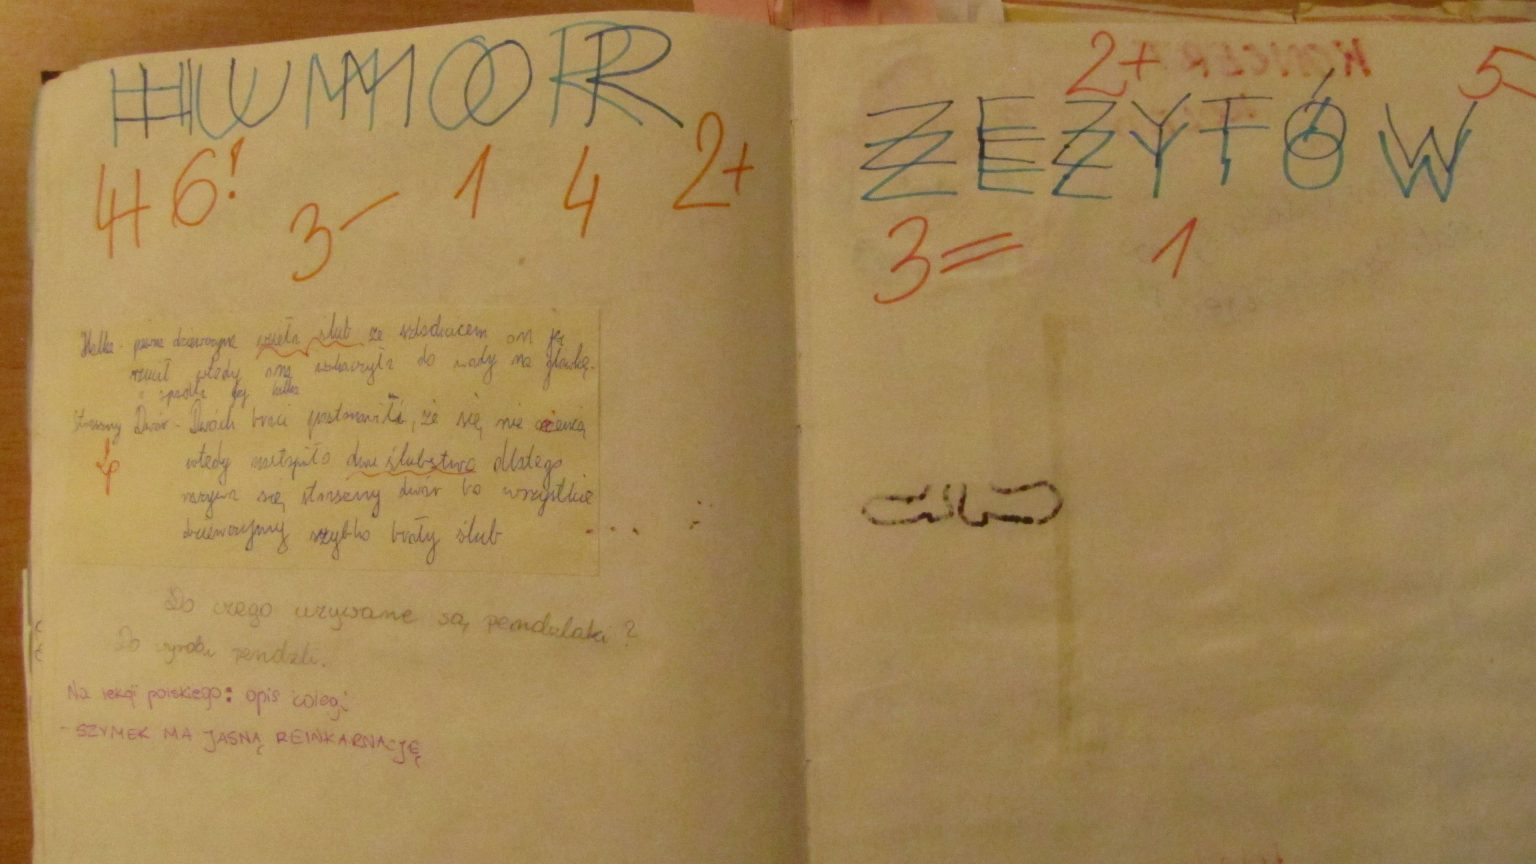 HUMOR ZEZYTÓW
2+ 5-
4+ 6! 3- 1 4 2+
3= 1
Halka - pewna dziewczyna wzięła ślub ze szlachcicem on ją
rzucił wtedy ona wskoczyła do wody na główkę.
Straszny Dwór - Dwóch braci postanowiło, że się nie ożenią
wtedy nastąpiło dwu ślubstwo dlatego
nazywa się straszny dwór bo wszystkie
dziewczyny szybko brały ślub
Do czego używane są pendzlaki?
Do wyrobu pendzli.
Na lekcji polskiego: opis kolegi
- SZYMEK MA JASNĄ REINKARNACJĘ